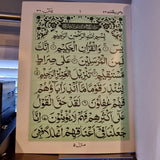 بِسْمِ اللهِ الرَّحْمٰنِ الرَّحِيْمِ
يٰسٓ وَالْقُرْاٰنِ الْحَكِيْمِ اِنَّكَ
لَمِنَ الْمُرْسَلِيْنَ عَلٰى صِرَاطٍ
مُّسْتَقِيْمٍ تَنْزِيْلَ الْعَزِيْزِ الرَّحِيْمِ
لِتُنْذِرَ قَوْمًا مَّآ اُنْذِرَ اٰبَآؤُهُمْ
فَهُمْ غٰفِلُوْنَ لَقَدْ حَقَّ الْقَوْلُ
عَلٰٓى اَكْثَرِهِمْ فَهُمْ لَا يُؤْمِنُوْنَ اِنَّا
جَعَلْنَا فِيْٓ اَعْنَاقِهِمْ اَغْلٰلًا فَهِيَ